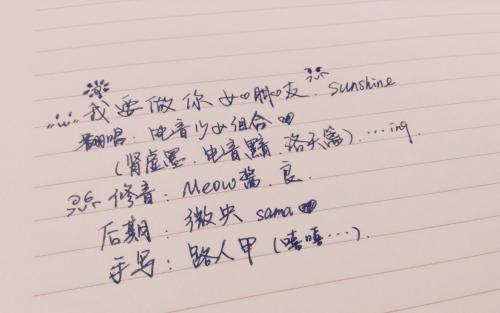 我要做你女朋友. sunshine
翻唱: 电音少女组合
(肾虚墨. 电音黯. 洛天篱)...ing.
修音: Meow酱. 良.
后期: 微央 sama
手写: 路人甲 (嘻嘻...).